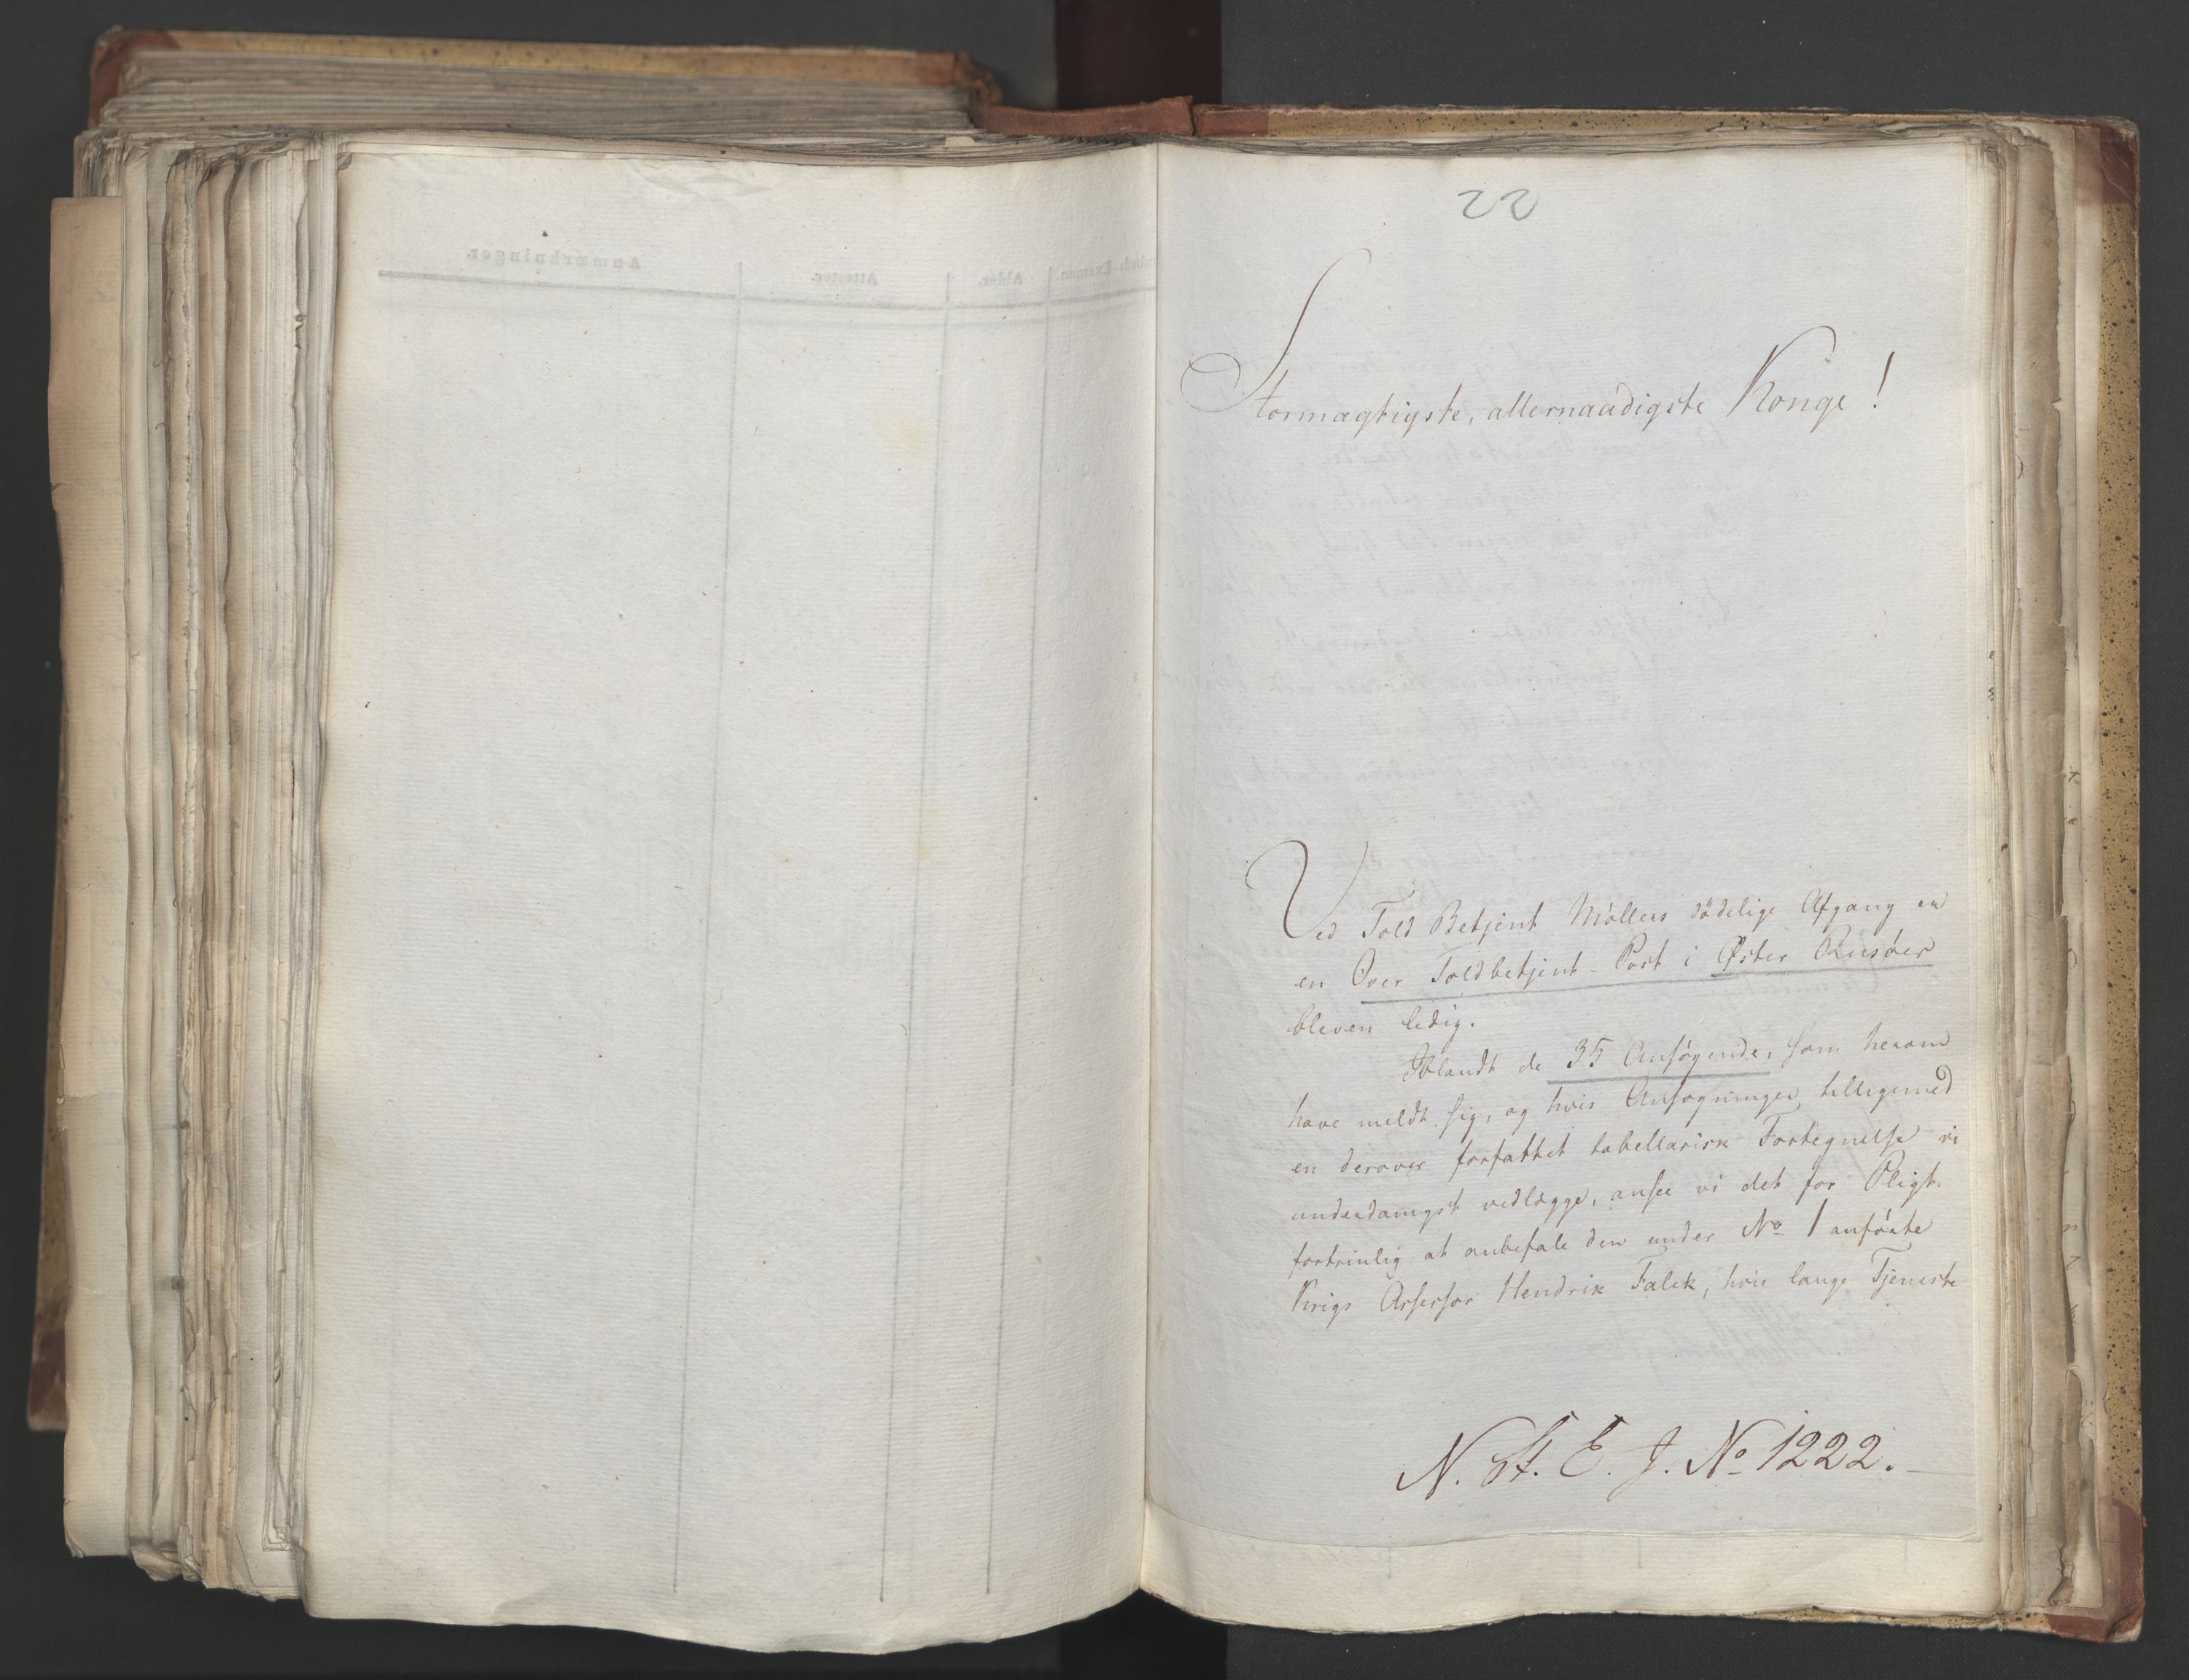 22
Stormægtigste, allernaadigste Konge!
Ved Told Betjent Møllers dødelige Afgang er
en Over Toldbetjent-Post i Øster Riisøer
bleven ledig.
Iblandt de 35 Ansøgende, som herom
have meldt sig, og hvis Ansøgninger tilligemed
en derover forfattet tabellarisk Fortegnelse vi
underdanigst vedlægge, ansee vi det for Pligt
fortrinlig at anbefale den under No 1 anførte
Krigs Assessor Hendrik Falck, hvis lange Tjeneste
N. St. E. J. No 1222.
Anmærkninger.
Attester.
Alder.
Examen.